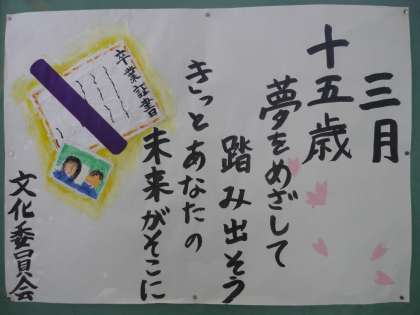 三月
十五歳
夢をめざして
踏み出そう
きっとあなたの
未来がそこに
卒業証書
文化委員会